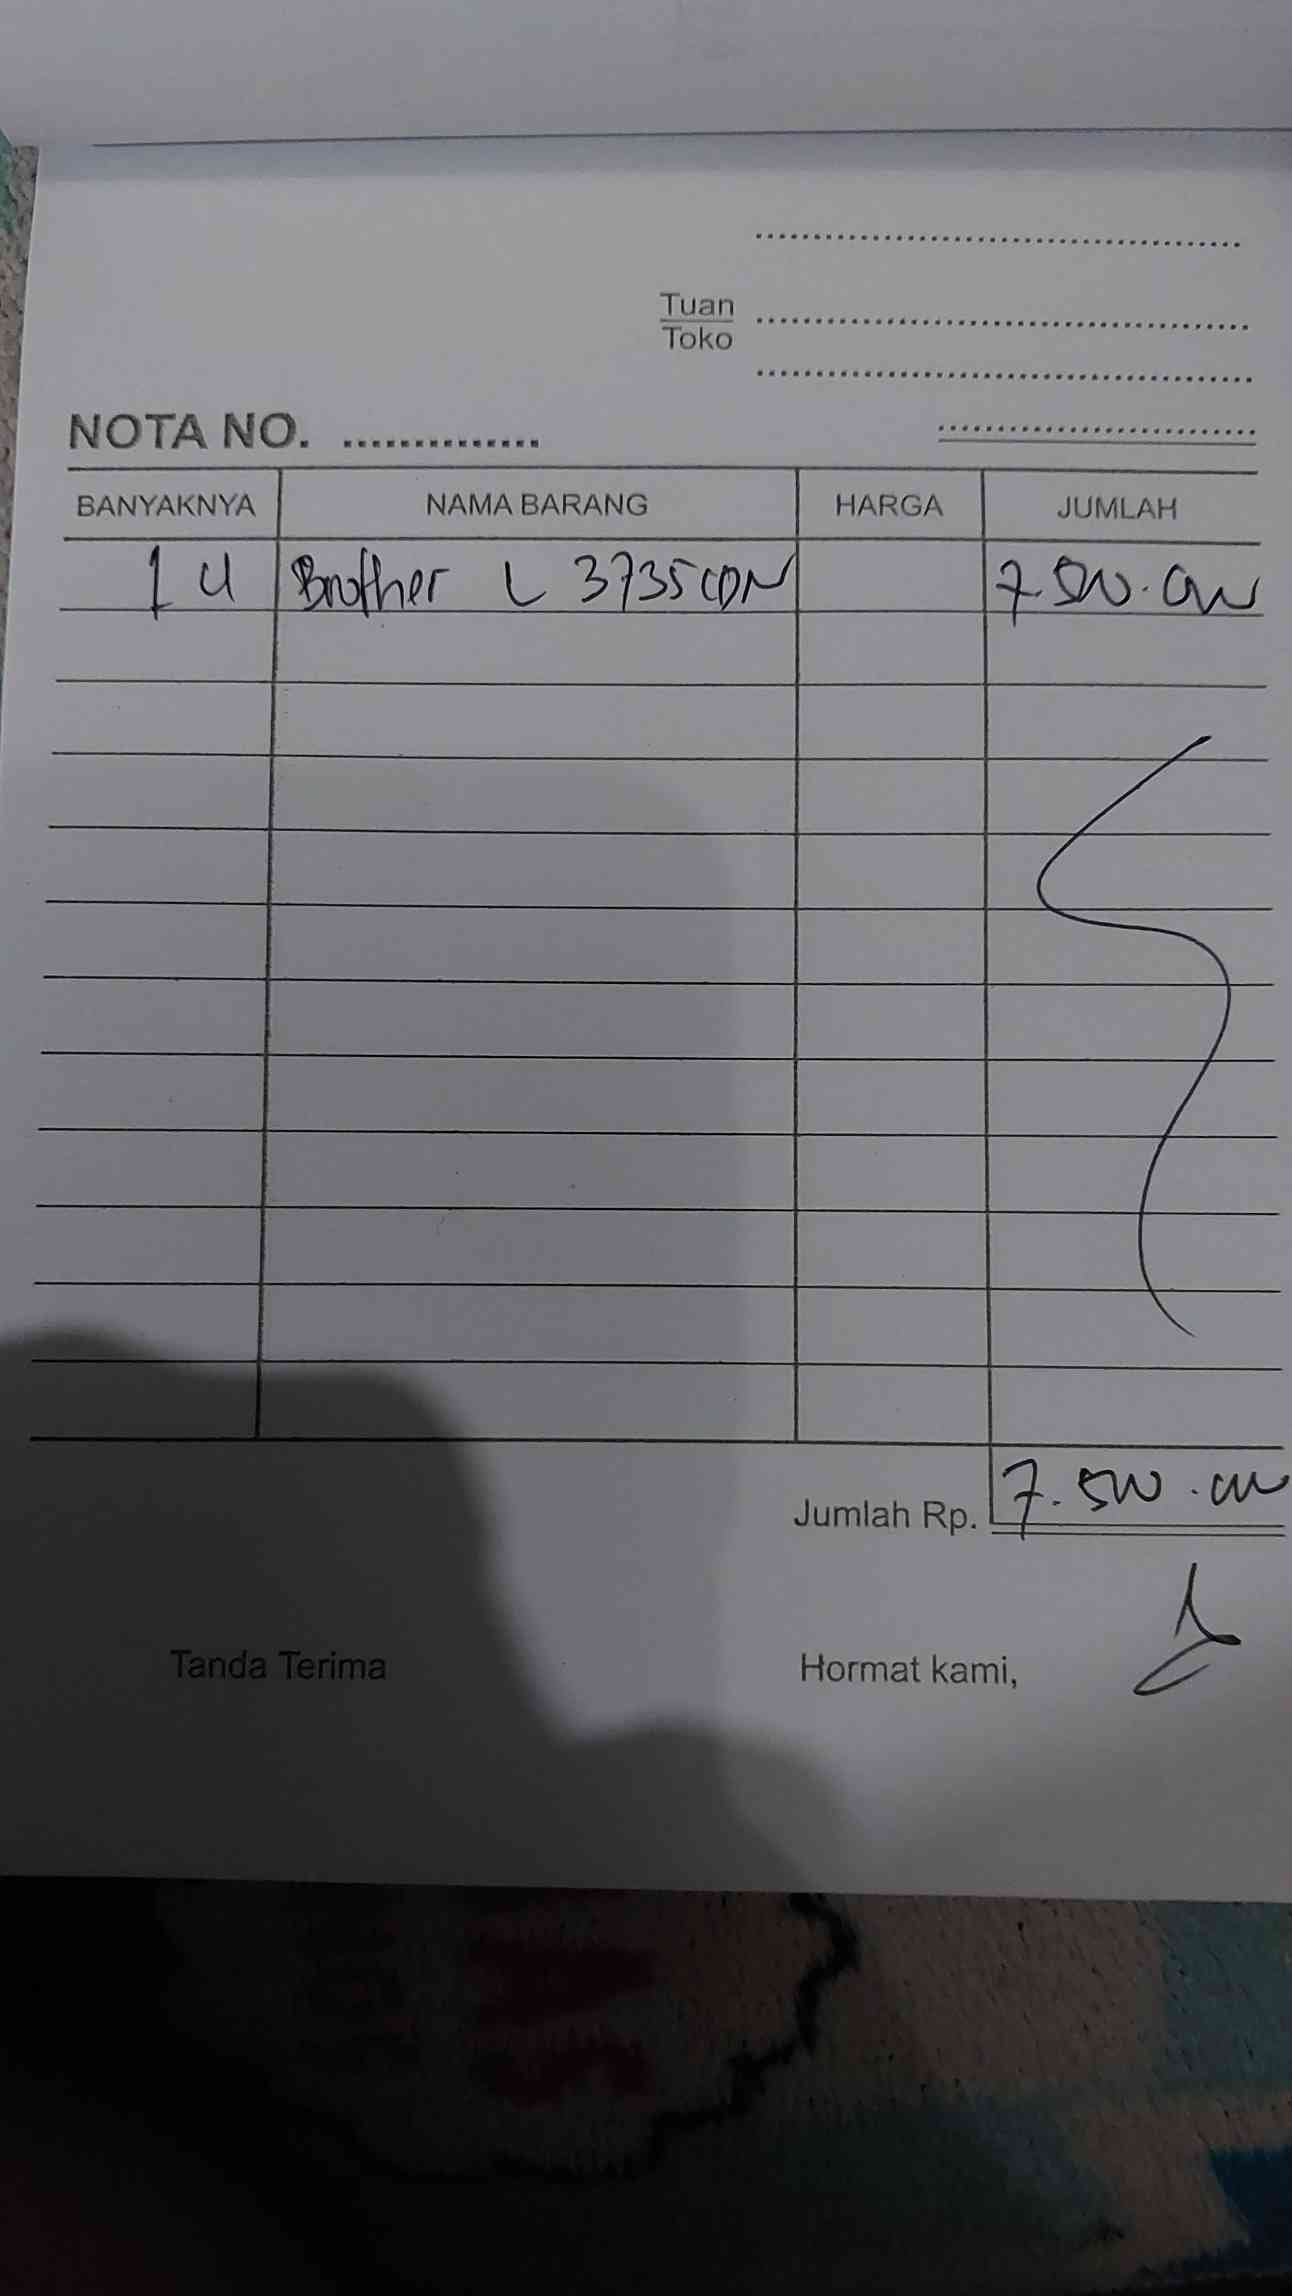 Tuan
Toko
NOTA NO. ..............
BANYAKNYA NAMA BARANG HARGA JUMLAH
1 U Brother L 3735CDN 7.500.000
Jumlah Rp. 7.500.000
Tanda Terima Hormat kami,